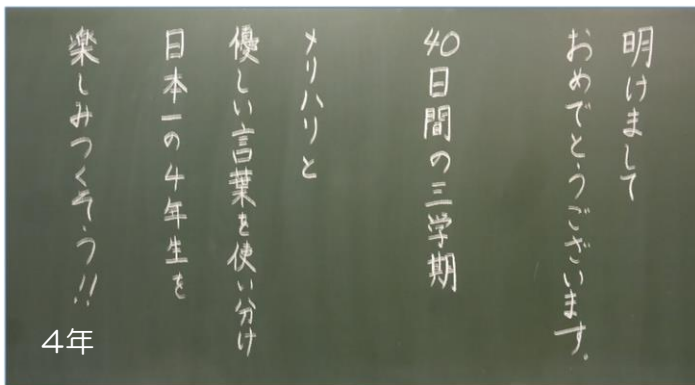 明けまして
おめでとうございます。
40日間の三学期
メリハリと
優しい言葉を使い分け
日本一の4年生を
楽しみつくそう!!
4年